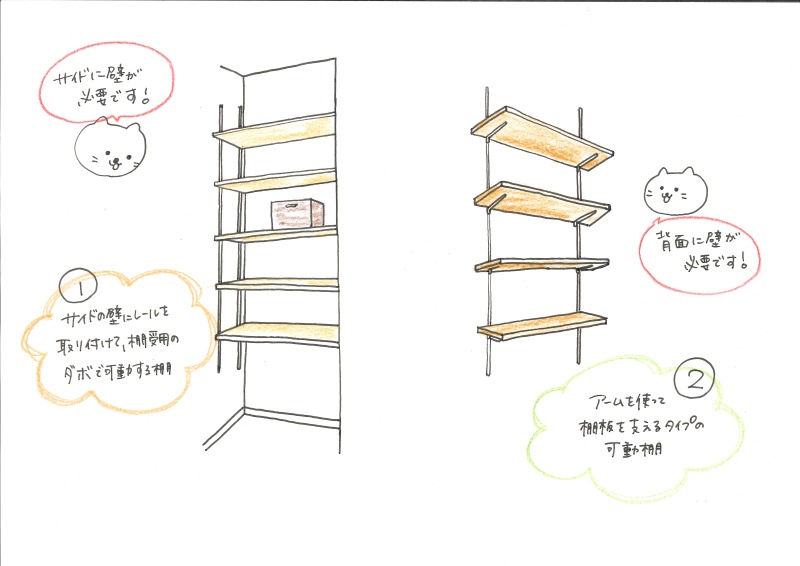 サイドに壁が
必要です!
1
サイドの壁にレールを
取り付けて、棚受用の
ダボで可動する棚
背面に壁が
必要です!
2
アームを使って
棚板を支えるタイプの
可動棚